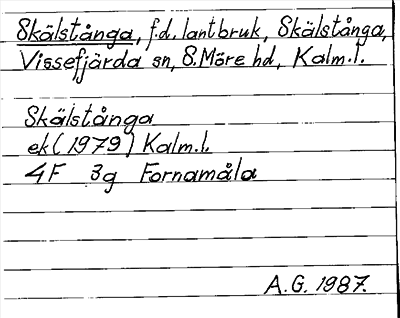 Skälstånga, f.d. lantbruk, Skälstånga,
Vissefjärda sn, S.Möre hd, Kalm.l.
Skälstånga
ek (1979) Kalm.l.
4F 3g Fornamåla
A.G. 1987.